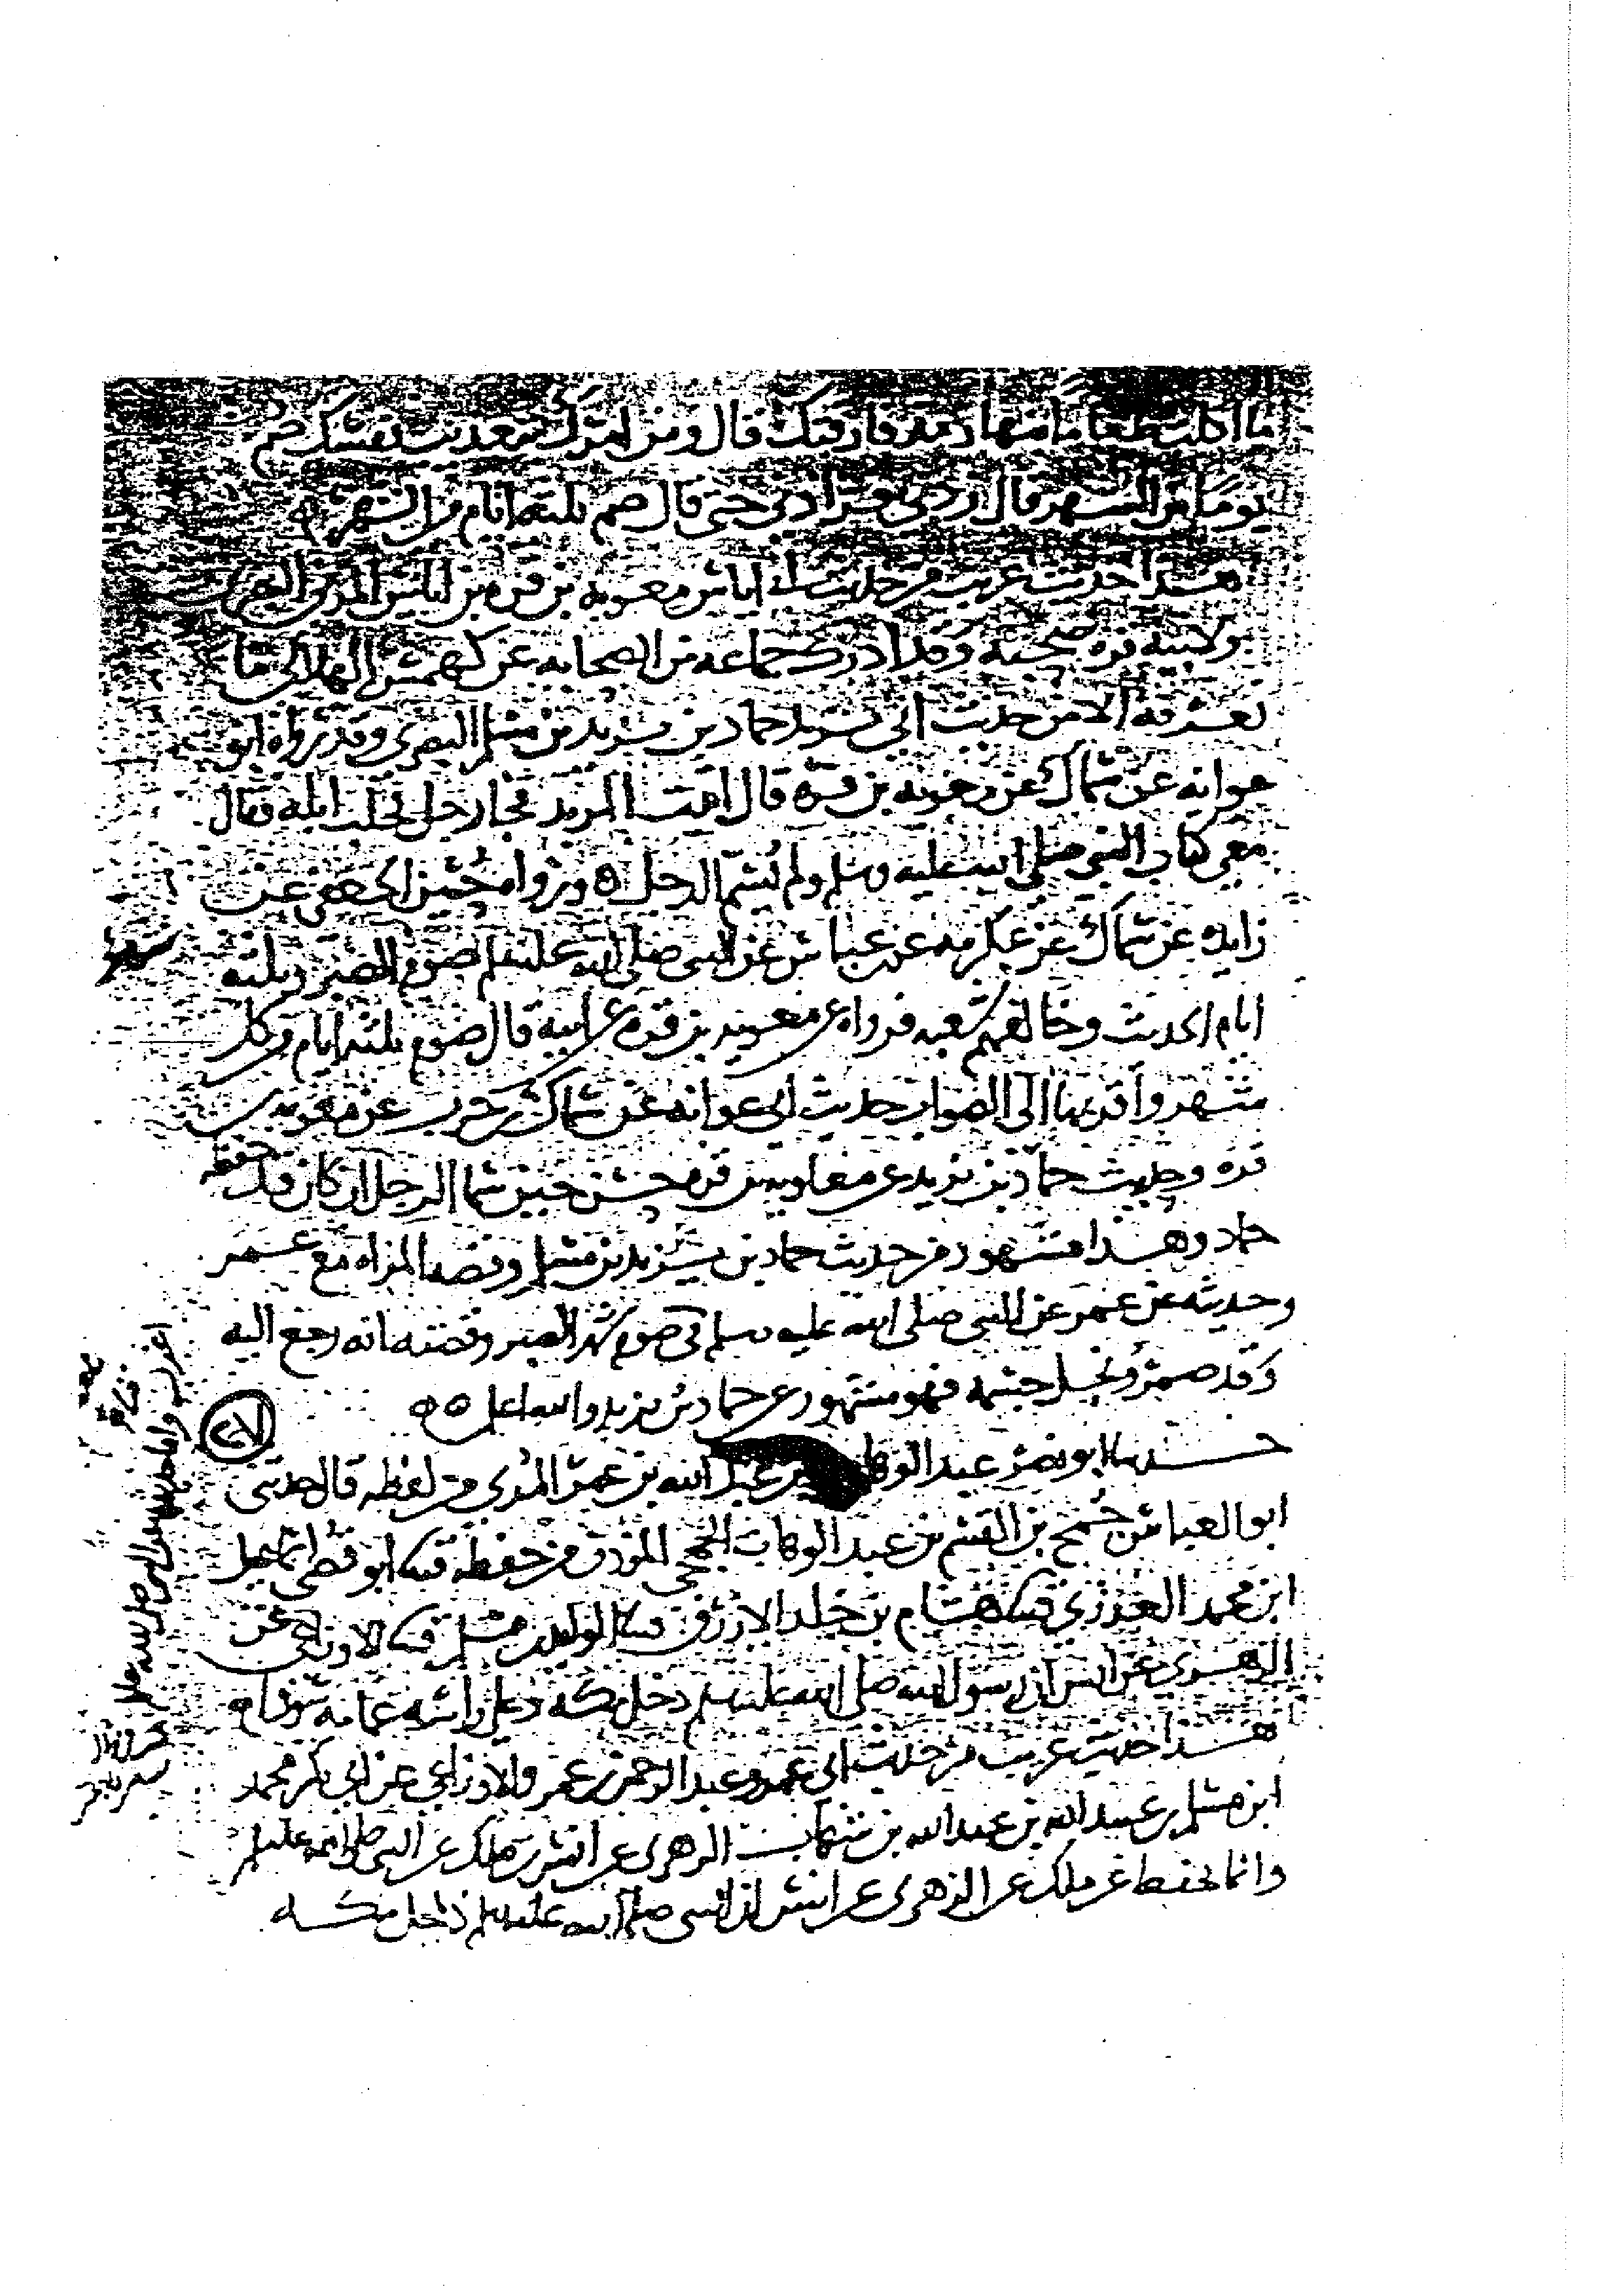 ما اكلت طعاما نهارا منذ فارقتك قال ومن امرك تعذيب نفسك صم
يوما من الشهر قال زدني فزادني حتى قال صم ثلثه ايام من الشهر
هذا حديث غريب من حديث ابي اياس معويه بن قره بن اياس المزني البصري
ولابيه قره صحبة وقد ادرك جماعه من الصحابه عن كهمس الهلالي ما
نعرفه الا من حديث ابي يزيد حماد بن يزيد بن مسلم البصري وقد رواه ابو
عوانه عن سماك عن معويه بن قره قال اتيت المربد فجا رجل ابله فقال
معي كتاب النبي صلى الله عليه وسلم ولم يسم الرجل ورواه حسين الجعفي عن
زايده عن سماك عن عكرمه عن بن عباس عن النبي صلى الله عليه وسلم صوم الصبر وثلثه
ايام الحديث وخالفهم شعبه فرواه عن معويه بن قره عن ابيه قال صوم ثلثه ايام من كل
شهر واقربها الى الصواب حديث ابي عوانه عن سماك بن حرب عن معويه بن
قره وحديث حماد بن يزيد عن معاويه بن قره حسن حين سما الرجل ان كان قد حفظه
حماد وهذا مشهور من حديث حماد بن يزيد بن مسلم وقصه المراه مع عمر
وحديثه عن عمر عن النبي صلى الله عليه وسلم في صوم شهر الصبر وقصته انه رجع اليه
وقد ضمر ونحل جسمه فهو مشهور عن حماد بن يزيد والله اعلم
حدثنا ابو نصر عبد الوهاب بن عبد الله بن عمر المري من لفظه قال حدثني
ابو العباس جمح بن القسم بن عبد الوهاب الجمحي الموذن من حفظه ثنا ابو قصي اسمعيل
ابن محمد العذري ثنا هشام بن خلد الازرق ثنا الوليد بن مسلم ثنا الاوزاعي عن
الزهري عن انس ان رسول الله صلى الله عليه وسلم دخل مكه وعلى راسه عمامه سوداء
هذا حديث غريب من حديث ابي عمرو عبد الرحمن بن عمرو الاوزاعي عن ابي بكر محمد
ابن مسلم بن عبيد الله بن عبد الله بن شهاب الزهري عن انس بن ملك عن النبي صلى الله عليه وسلم
وانما يحفظ عن ملك عن الزهري عن انس ان النبي صلى الله عليه وسلم دخل مكه